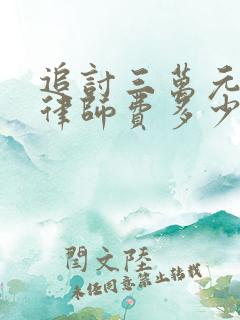 追討三萬元
律師費多少
閆文陸
未經同意禁止轉載